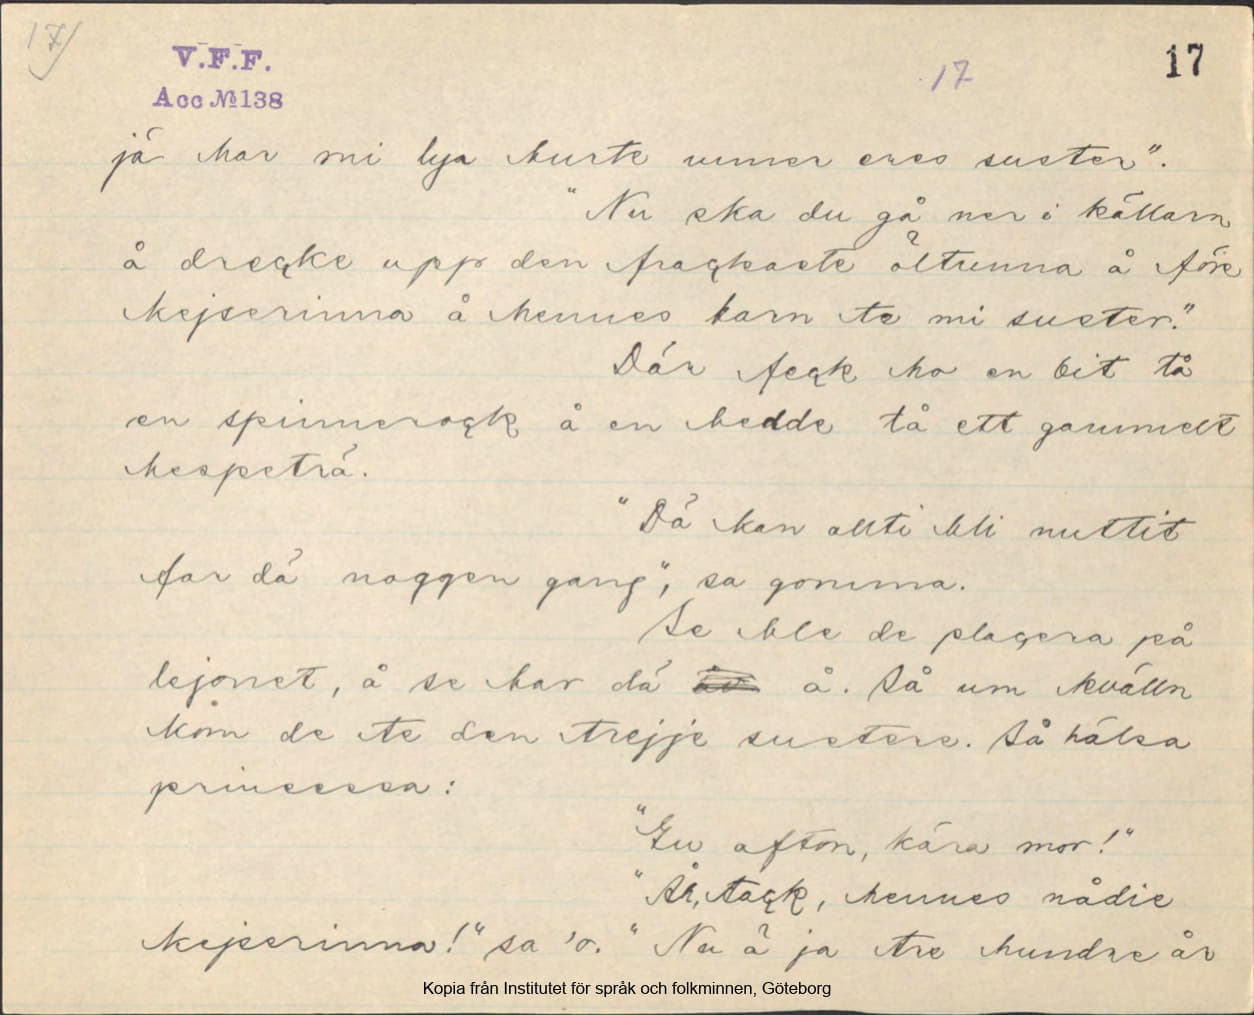 17/
V.F.F.
Acc № 138
17
17
já har mi lya hurte unner eres suster".
"Nu ska du gå ner i källarn
å dregke upp den fragkaste öltunna å före
kejserinna å hennes barn te mi suster."
Där fegk ho en bit tå
en spinnerogk å en hedde tå ett gammelt
hespeträ.
"Dá kan allti bli nuttit
far dá noggen gang", sa gomma.
Se ble de plagera på
lejonet, å se bar dá å. Så um kvälln
kom de te den trejje sustere. Så hälsa
princessa:
"Gu afton, kära mor!"
"Åh, tagk, hennes nådie
kejserinna!" sa 'o. "Nu ä ja tre hundre år
Kopia från Institutet för språk och folkminnen, Göteborg